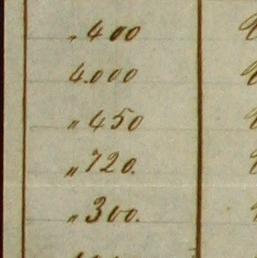 „400
4.000
„450
„720.
„300.